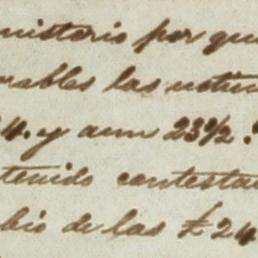 nisterio por qu
rables las notici
4. y aun 23½.
tenido contesta
bio de las £24